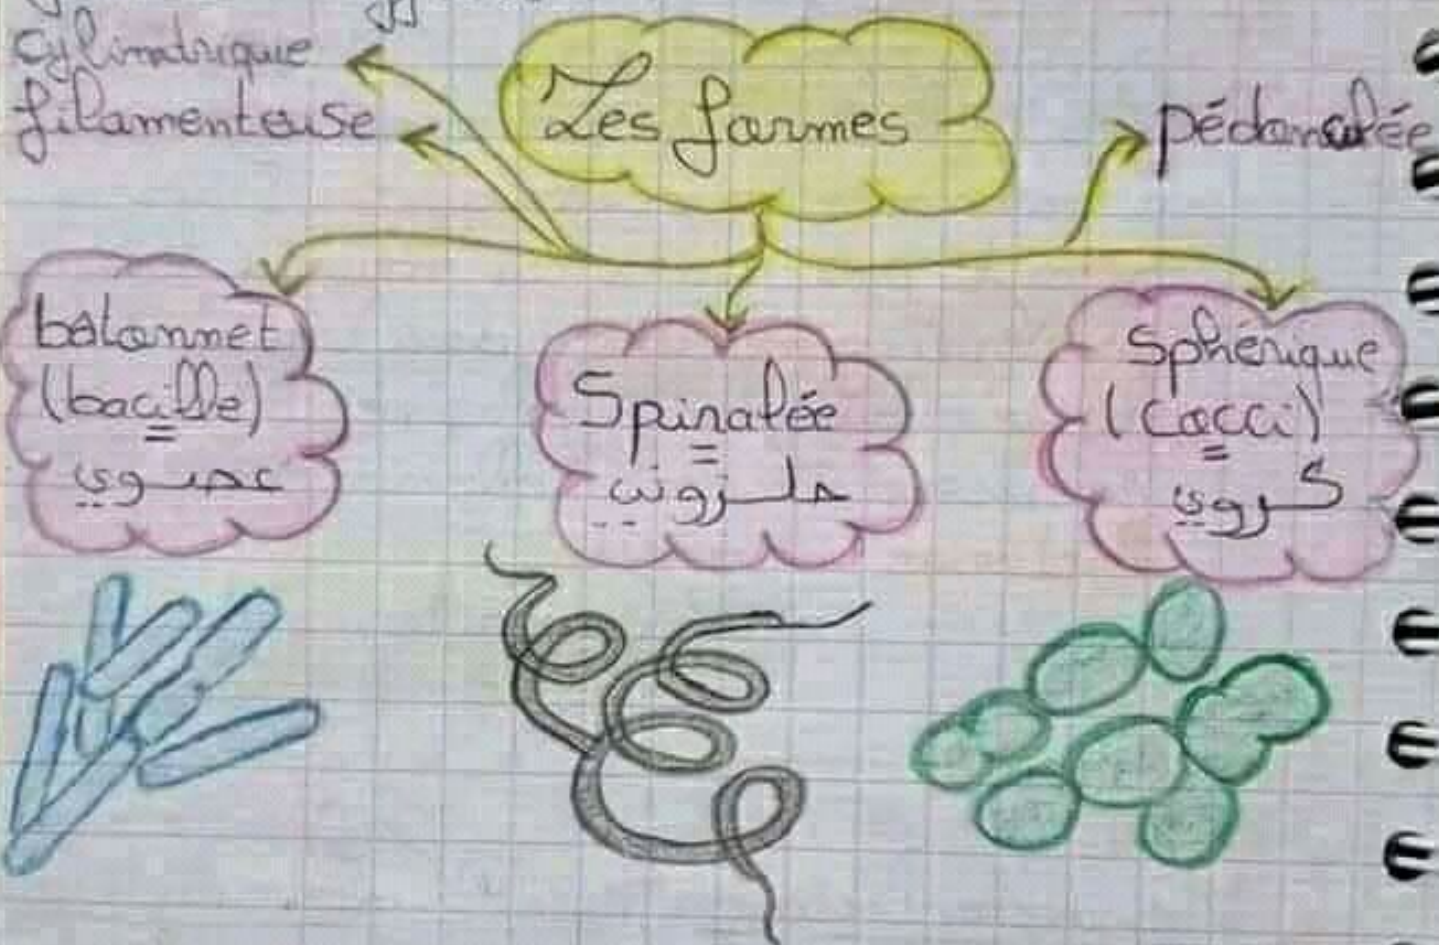 cylindrique
filamenteuse
Les formes
pédonculée
bâtonnet
(bacille)
=
عصوي
Spiralée
=
حلزونية
Sphérique
(cocci)
=
كروي